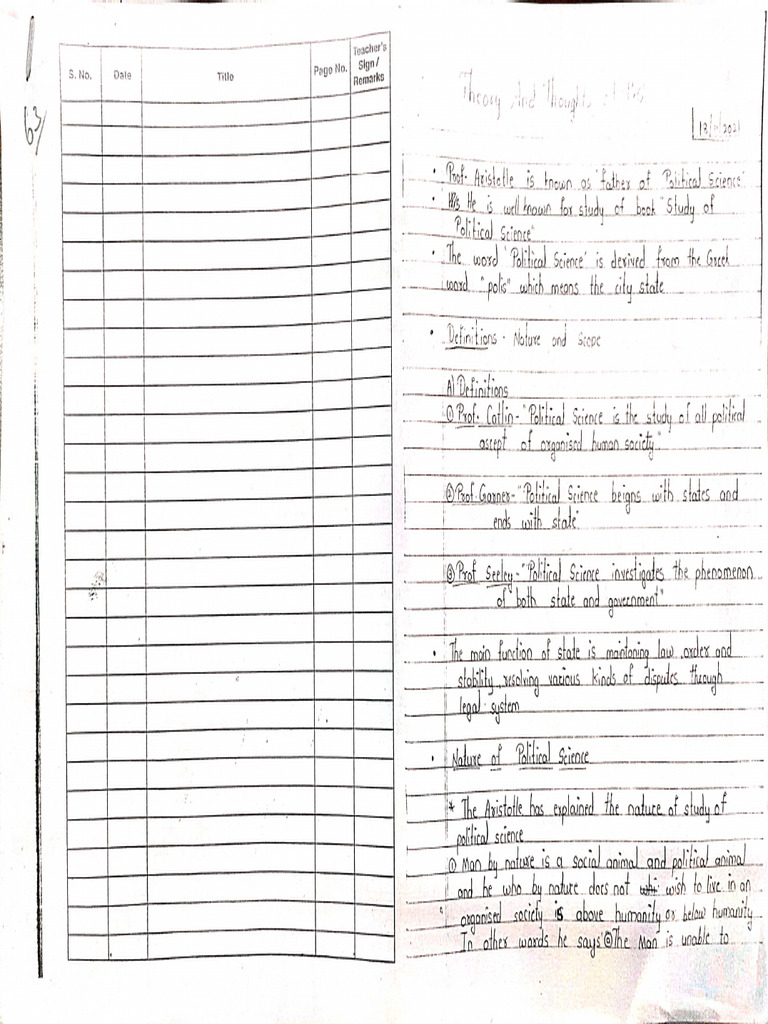 63/
S. No.
Date
Title
Page No.
Teacher's
Sign /
Remarks
Theory And Thoughts of
• Prof. Aristotle is known as 'father of Political Science'
• He is well known for study of book "Study of
Political Science"
• The word 'Political Science' is derived from the Greek
word "polis" which means the city state
• Definitions - Nature and Scope
A) Definitions
① Prof. Catlin - "Political Science is the study of all political
ascept of organised human society."
② Prof. Garner - "Political Science beigns with states and
ends with state"
③ Prof Seeley - "Political Science investigates the phenomenon
of both state and government"
• The main function of state is maintaning law, order and
stability, resolving various kinds of disputes through
legal system
• Nature of Political Science
* The Aristotle has explained the nature of study of
political science
① Man by nature is a social animal and political animal
and he who by nature does not wish to live in an
organised society is above humanity or below humanity
In other words he says ② The Man is unable to